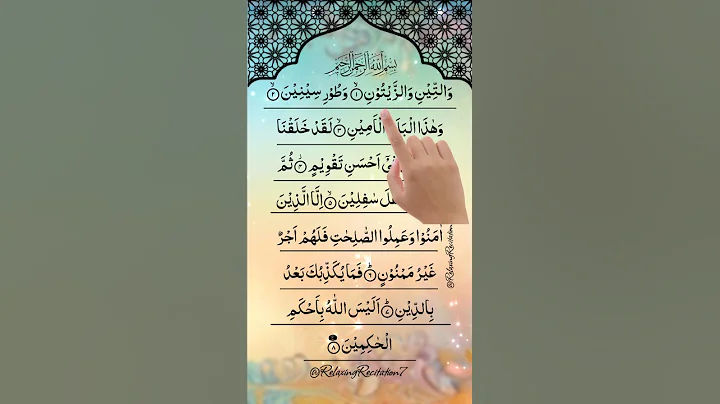 بِسْمِ اللّٰهِ الرَّحْمٰنِ الرَّحِيْمِ
وَالتِّيْنِ وَالزَّيْتُوْنِ ۙ۱ وَطُوْرِ سِيْنِيْنَ ۙ۲
وَهٰذَا الْاَمِيْنِ ۙ۳ لَقَدْ خَلَقْنَا
اَحْسَنِ تَقْوِيْمٍ ۴ ثُمَّ
سٰفِلِيْنَ ۙ۵ اِلَّا الَّذِيْنَ
اٰمَنُوْا وَعَمِلُوا الصّٰلِحٰتِ فَلَهُمْ اَجْرٌ
غَيْرُ مَمْنُوْنٍ ؕ۶ فَمَا يُكَذِّبُكَ بَعْدُ
بِالدِّيْنِ ؕ۷ اَلَيْسَ اللّٰهُ بِاَحْكَمِ
الْحٰكِمِيْنَ ۸
@RelaxingRecitation7
@RelaxingRecitation